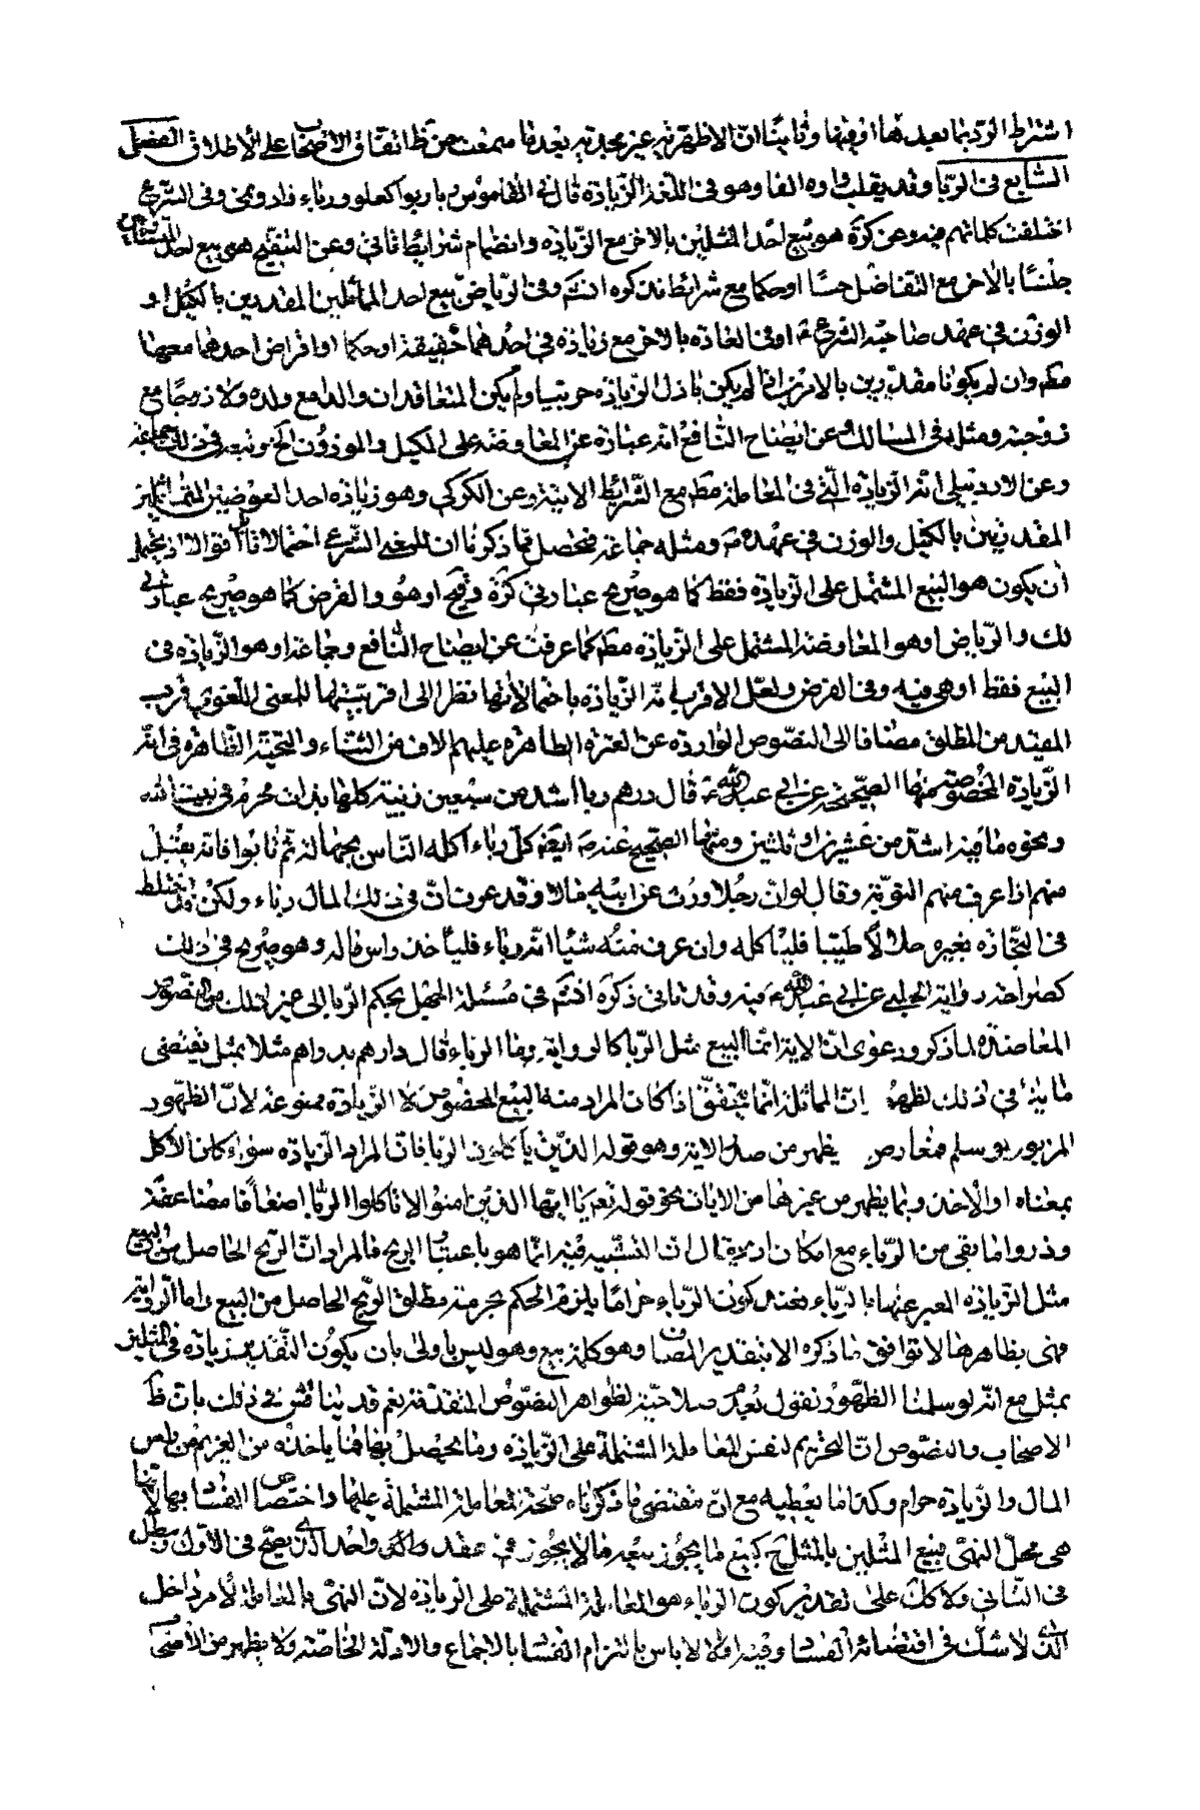 اشتراط الردّ بما بعيدها او فيها وثانيا انّ الاظهرية غير مجدية بعد ما سمعت من ظ اتفاق الاصحاب على الاطلاق الفصل
السّابع فى الرّبا وقد يقلب واوه الفا وهو فى اللّغة الزّيادة قال فى القاموس ربا ربوا كعلو ورباء زاد ونمى وفى الشّرع
اختلفت كلماتهم فيه وعن كره هو بيع احد المثلين بالاخر مع الزّيادة وانضمام شرايط تاتى وعن التنقيح هو بيع احد المتساويين
جنسًا بالاخر مع التفاضل حسًا او حكما مع شرائط نذكره انشَ وفى الرّياض بيع احد المتماثلين المقدرين بالكيل او
الوزن فى عهد صاحب الشرع ع او فى العادة بالاخر مع زيادة فى احدهما حقيقة او حكما او اقراض احدهما معها
مط وان لم يكونا مقدّرين بالامرين اذا لم يكن باذل الزّيادة حربيا ولم يكن المتعاقدان والدا مع ولده ولا زوجًا مع
زوجته ومثله فى المسالك وعن ايضاح النّافع انّه عبارة عن المعاوضة على المكيل والموزون وتبعه فى ذلك جماعة
وعن الاردبيلى انّه الزّيادة الّتى فى المعاملة مط مع الشّرايط الاتية وعن الكركى وهو زيادة احد العوضين المتماثلين
المقدرين بالكيل والوزن فى عهده ص ومثله جماعة فتحصل ممّا ذكرنا ان للمعنى الشرعى احتمالات اذ يحتمل
أن يكون هو البيع المشتمل على الزيادة فقط كما هو صريح عبارتى كره وقيح او هو والقرض كما هو صريح عبارتى
لك والرّياض او هو المعاوضة المشتمل على الزّيادة مط كما عرفت عن ايضاح النّافع وجماعة او هو الزّيادة فى
البيع فقط او هى فيه وفى القرض ولعلّ الاقرب انّه الزّيادة باحتمالاتها نظرا الى اقربيّتها للمعنى اللغوى قرب
المقيّد من المطلق مضافا الى النصوص الواردة عن العترة الطاهرة عليهم الاف من الثناء والتحيّة الظّاهرة فى انّه
الزّيادة المخصوصة منها الصّحيحة عن ابى عبد الله ع قال درهم ربا اشد من سبعين زنية كلها بذات محرم فى بيت الله
ونحوه ما فيه اشدّ من عشرين او ثلثين ومنها الصّحيح عنه ع ايضَ كلّ رباء اكله النّاس بجهالة ثمّ تابوا فانّه يقبل
منهم اذا عرف منهم التوبة وقال لو انّ رجلا ورث عن ابيه مالا وقد عرف انّ فى ذلك المال رباء ولكن قد اختلط
فى التّجارة بغيره حلالًا طيّبا فليأكله وان عرف منه شيئا انّه رباء فلياخذ راس ماله وهو صريح فى ذلك
كصراحة رواية الحلبى عن ابى عبد الله ع فيه وقد ثانى ذكره اختم فى مسئلة الجهل بحكم الرّبا الى غير ذلك من النّصوص
المعاضدة لما ذكر ودعوى انّ الاية انّما البيع مثل الرّبا كالرواية وما الرباء قال دارهم بدراهم مثلا بمثل يقتضى
مباينة فى ذلك لظهور انّ المماثلة انّما تتحقّق اذا كان المراد منه البيع المخصوص لا الزّيادة ممنوعة لانّ الظّهور
المزبور لو سلم فمعارض يظهر من صدر الاية وهو قوله الّذين ياكلون الربا فانّ المراد الزّيادة سواء كان الأكل
بمعناه او الأخذ وبما يظهر من غيرها من الايات نحو قوله تعَ يا ايّها الذين امنوا لا تاكلوا الرّبا اضعافًا مضاعفة
وذروا ما بقى من الرّباء مع امكان ان يقال انّ التشبيه فيه انّما هو باعتبار الربح فالمراد انّ الرّبح الحاصل من البيع
مثل الزّيادة المعبر عنها بالرّباء فعند كون الرّباء حرامًا يلزم الحكم بحرمة مطلق الرّبح الحاصل من البيع وامّا الرّواية
فهى بظاهرها لا توافق ما ذكره الا بتقدير المضاف وهو كلمة بيع وهو ليس باولى بان يكون التقدير زيادة فى المثلين
بمثل مع انّه لو سلمنا الظّهور نقول بعدم صلاحيّة لظواهر النصّوص المتقدّمة نعم قد يناقش فى ذلك بانّ ظ
الاصحاب والنصّوص انّ التحريم لنفس المعاملة المشتملة على الزّيادة وما يحصل بها فما ياخذه من الغريم من راس
المال والزيادة حرام وكذا ما يعطيه مع انّ مقتضى ما ذكرناه صحّة المعاملة المشتملة عليها واختصاص الفساد بها لانّها
هى محلّ النهى فبيع المثلين بالمثل كبيع ما يجوز بيعه وما لا يجوز فى عقد واحد الذى يصحّ فى الاوّل ويبطل
فى الثّانى ولا كك على تقدير كون الرّباء هو المعاملة المشتملة على الزيادة لانّ النهى بالمعاملة لأمر داخل
الّذى لا شكّ فى اقتضائه الفساد وفيه اوّلا لا باس بالتزام الفساد بالاجماع والادلّة الخاصّة ولا يظهر من الاصحاب